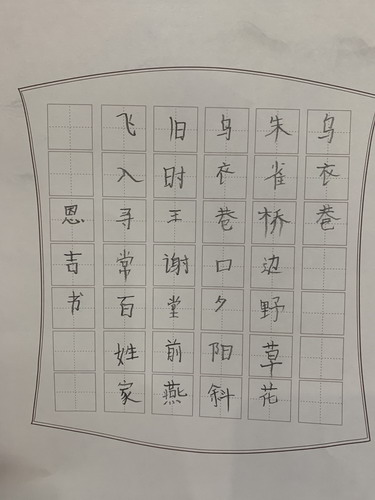 乌衣巷
朱雀桥边野草花
乌衣巷口夕阳斜
旧时王谢堂前燕
飞入寻常百姓家
恩吉书